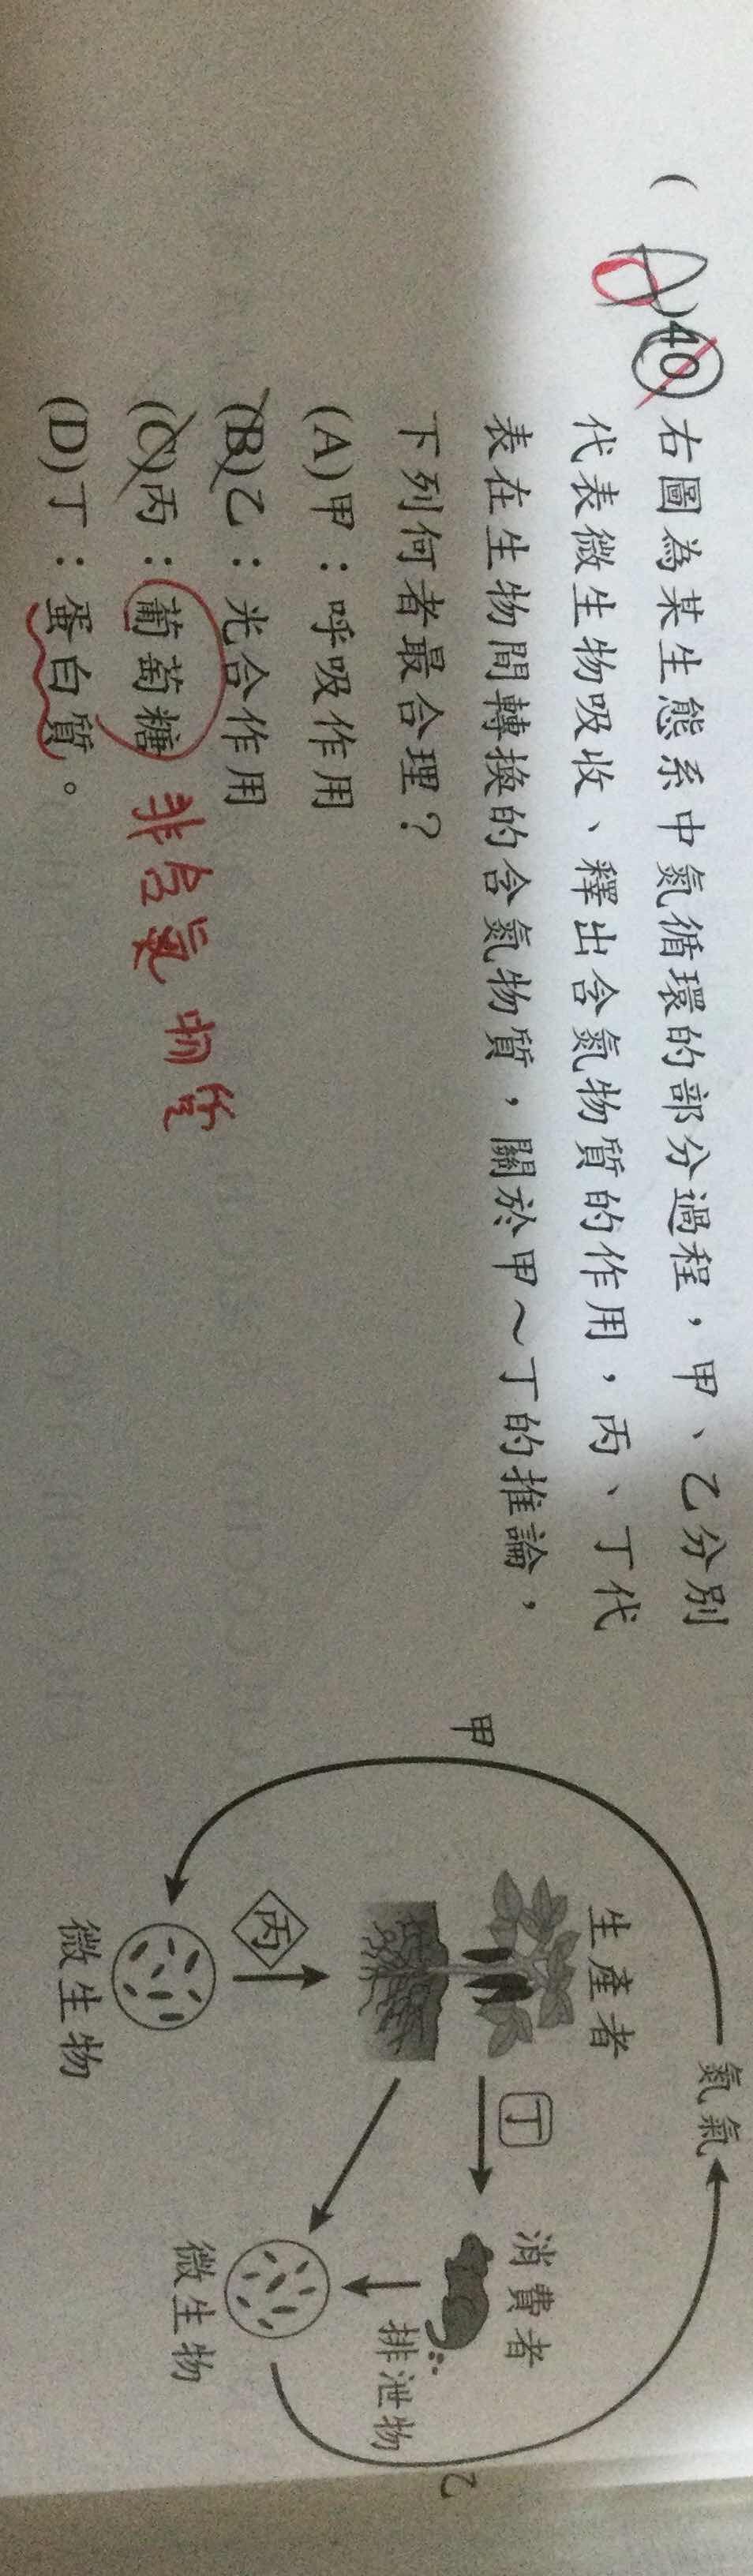 ( D )40. 右圖為某生態系中氮循環的部分過程，甲、乙分別
代表微生物吸收、釋出含氮物質的作用，丙、丁代
表在生物間轉換的含氮物質，關於甲～丁的推論，
下列何者最合理？
(A)甲：呼吸作用
(B)乙：光合作用
(C)丙：葡萄糖 非含氮物質
(D)丁：蛋白質。
氮氣
甲
生產者
丁
消費者
丙
排泄物
乙
微生物
微生物